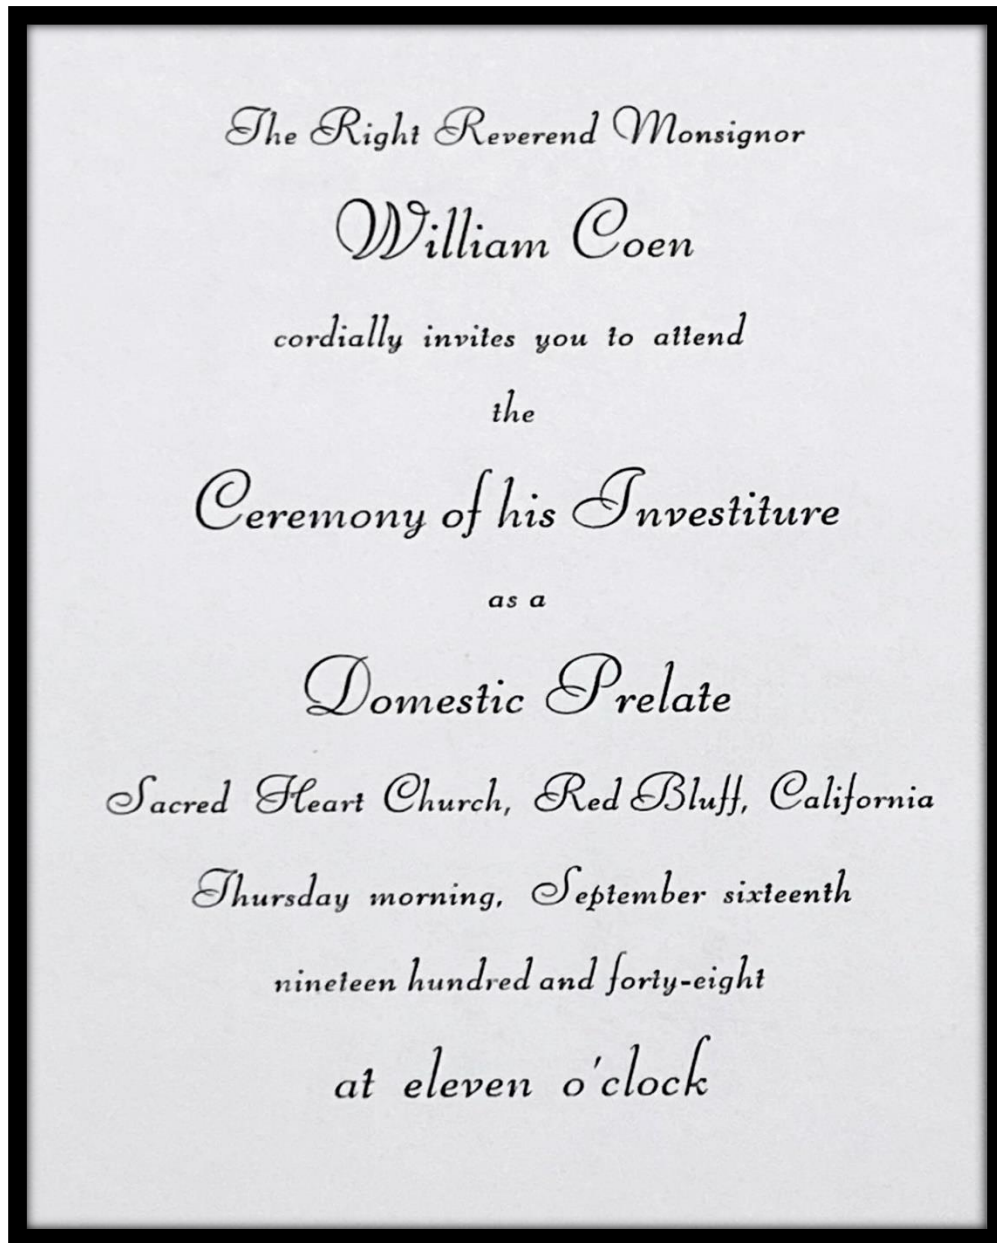 The Right Reverend Monsignor
William Coen
cordially invites you to attend
the
Ceremony of his Investiture
as a
Domestic Prelate
Sacred Heart Church, Red Bluff, California
Thursday morning, September sixteenth
nineteen hundred and forty-eight
at eleven o'clock